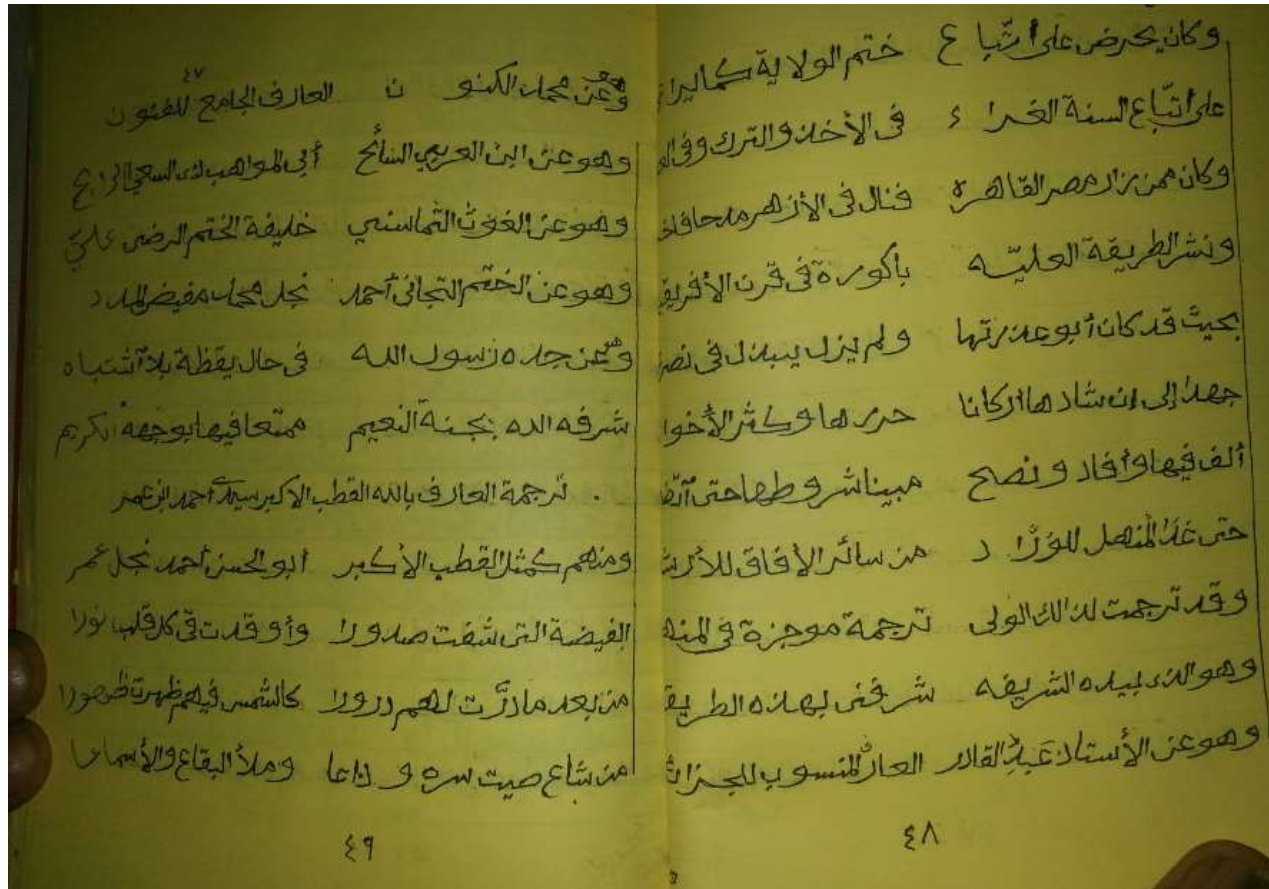 وكان يحرض على اتّباع ختم الولاية كما يرا
على اتّباع السنة الغراء فى الأخذ والترك وفى
وكان ممن زار مصر القاهرة فنال فى الأزهر مدحا
ونشر الطريقة العليّه باكورة فى قرن الأفريق
بحيث قد كان أبو عذرتها ولم يزل يبذل فى نصر
جهدا إلى ان شادها اركانا حررها وكثر الأخوا
ألف فيها وأفاد ونصح مبينا شروطها حتى
حتى غدا المنهل للورّاد من سائر الأفاق للأرش
وقد ترجمت لذالك الولى ترجمة موجزة فى المنه
وهو الذى بيده الشريفه شرفنى بهذه الطريق
وهو عن الأستاذ عبد القادر المنسوب للجزائ
٤٨
٤٧
وهو عن محمد الكنون العارف الجامع للفنون
وهو عن ابن العربي السائح أبى المواهب لدى السعي الرابح
وهو عن الغوث التماسنيي خليفة الختم الرضى عليّ
وهو عن الختم التجانى أحمد نجل محمد مفيض المدد
وهو عن جده رسول الله فى حال يقظة بلا آشتباه
شرفه الله بجنة النعيم ممتعا فيها بوجهه الكريم
. ترجمة العارف بالله القطب الاكبر سيدى احمد ابن عمر
ومنهم كمثل القطب الأكبر أبو الحسن أحمد نجل عمر
الفيضة التى شفت صدورا وأوقدت فى كل قلب نورا
من بعد ما درّت لهم درورا كالشمس فيهم ظهرت ظهورا
من شاع صيت سره وذاعا وملأ البقاع والأسماعا
٤٩